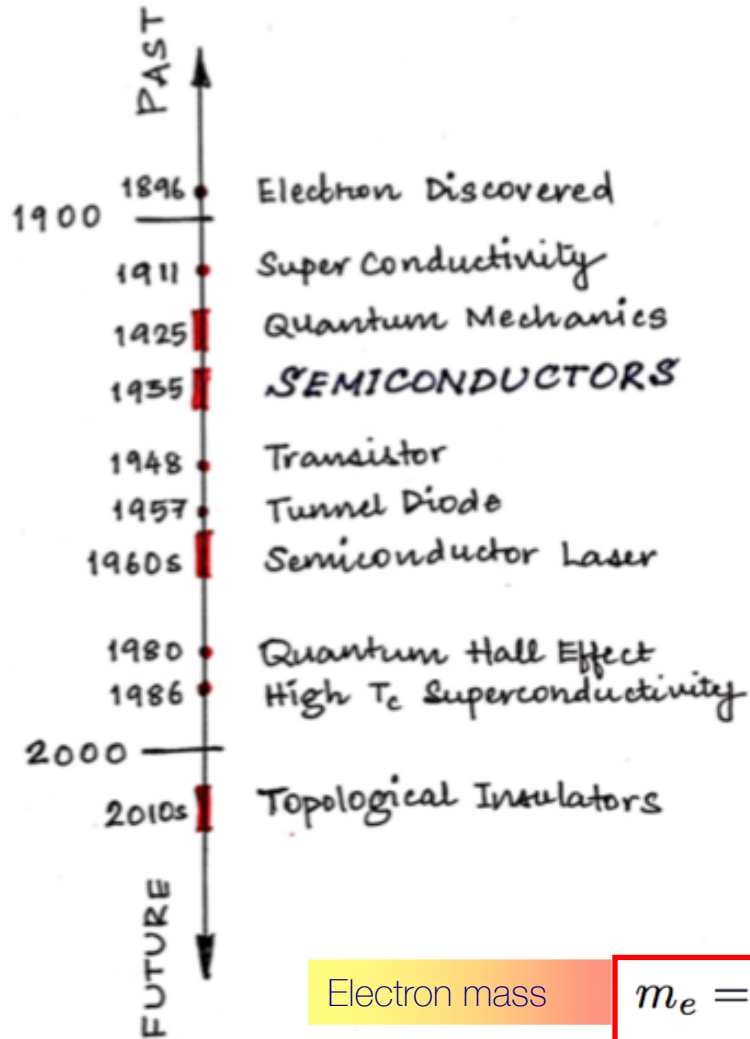 PAST
1896 Electron Discovered
1900
1911 Super Conductivity
1925 Quantum Mechanics
1935 SEMICONDUCTORS
1948 Transistor
1957 Tunnel Diode
1960s Semiconductor Laser
1980 Quantum Hall Effect
1986 High Tc Superconductivity
2000
2010s Topological Insulators
FUTURE
Electron mass m_e =